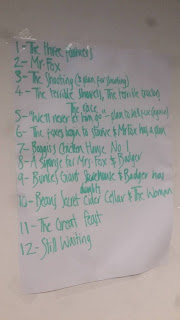 1- The three farmers
2- Mr Fox
3- The Shooting (& plan for shooting)
4- The terrible shovels, The terrible tractors
The race
5- "We'll never let him go" - plan to kill fox (again)
6- The foxes begin to starve & Mr Fox has a plan
7- Boggis's Chicken House No. 1
8- A surprise for Mrs. Fox & Badger
9- Bunce's Giant Storehouse & Badger has
doubts
10- Bean's Secret Cider Cellar & The Woman
11- The Great Feast
12- Still Waiting